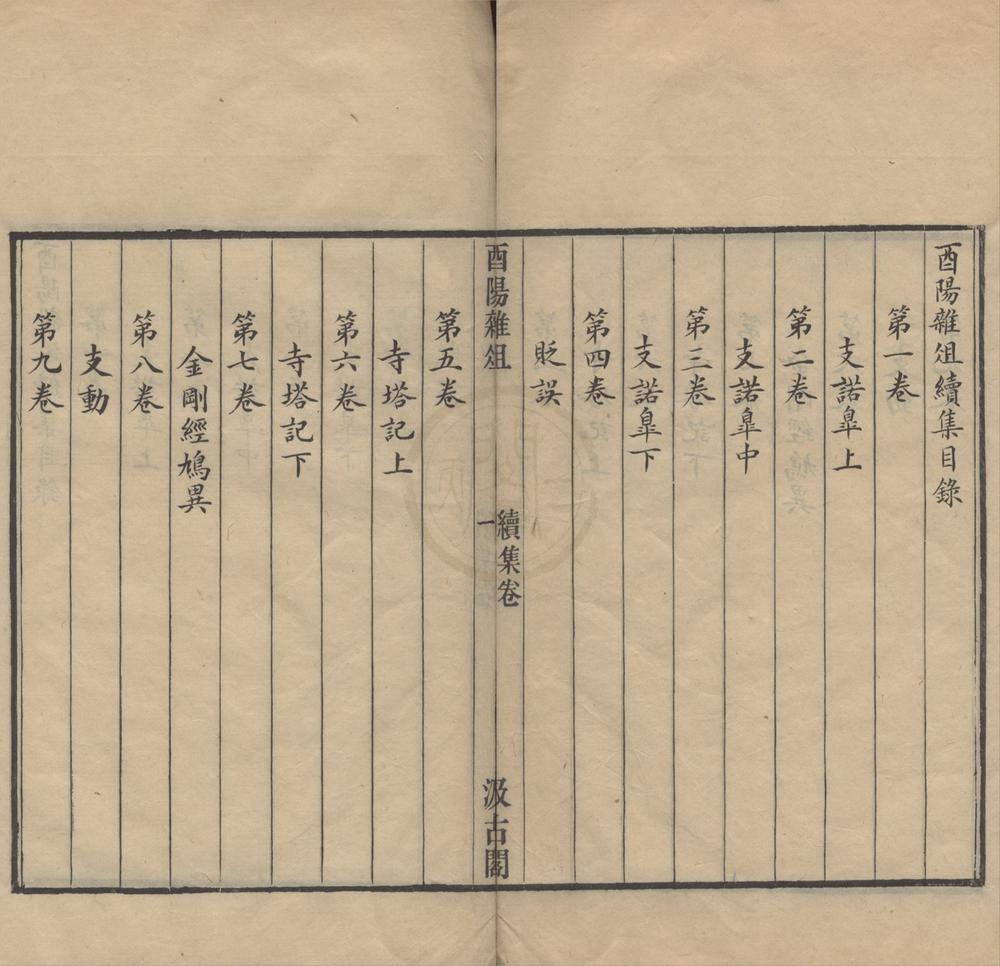 酉陽雜俎續集目錄
第一卷
支諾皐上
第二卷
支諾皐中
第三卷
支諾皐下
第四卷
貶誤
酉陽雜俎
續集卷
一
汲古閣
第五卷
寺塔記上
第六卷
寺塔記下
第七卷
金剛經鳩異
第八卷
支動
第九卷